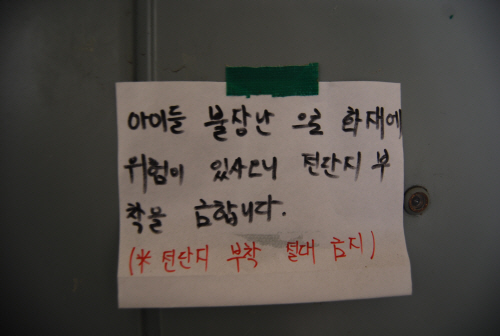 아이들 불장난 으로 화재에
위험이 있사오니 전단지 부
착을 금합니다.
(* 전단지 부착 절대 금지)